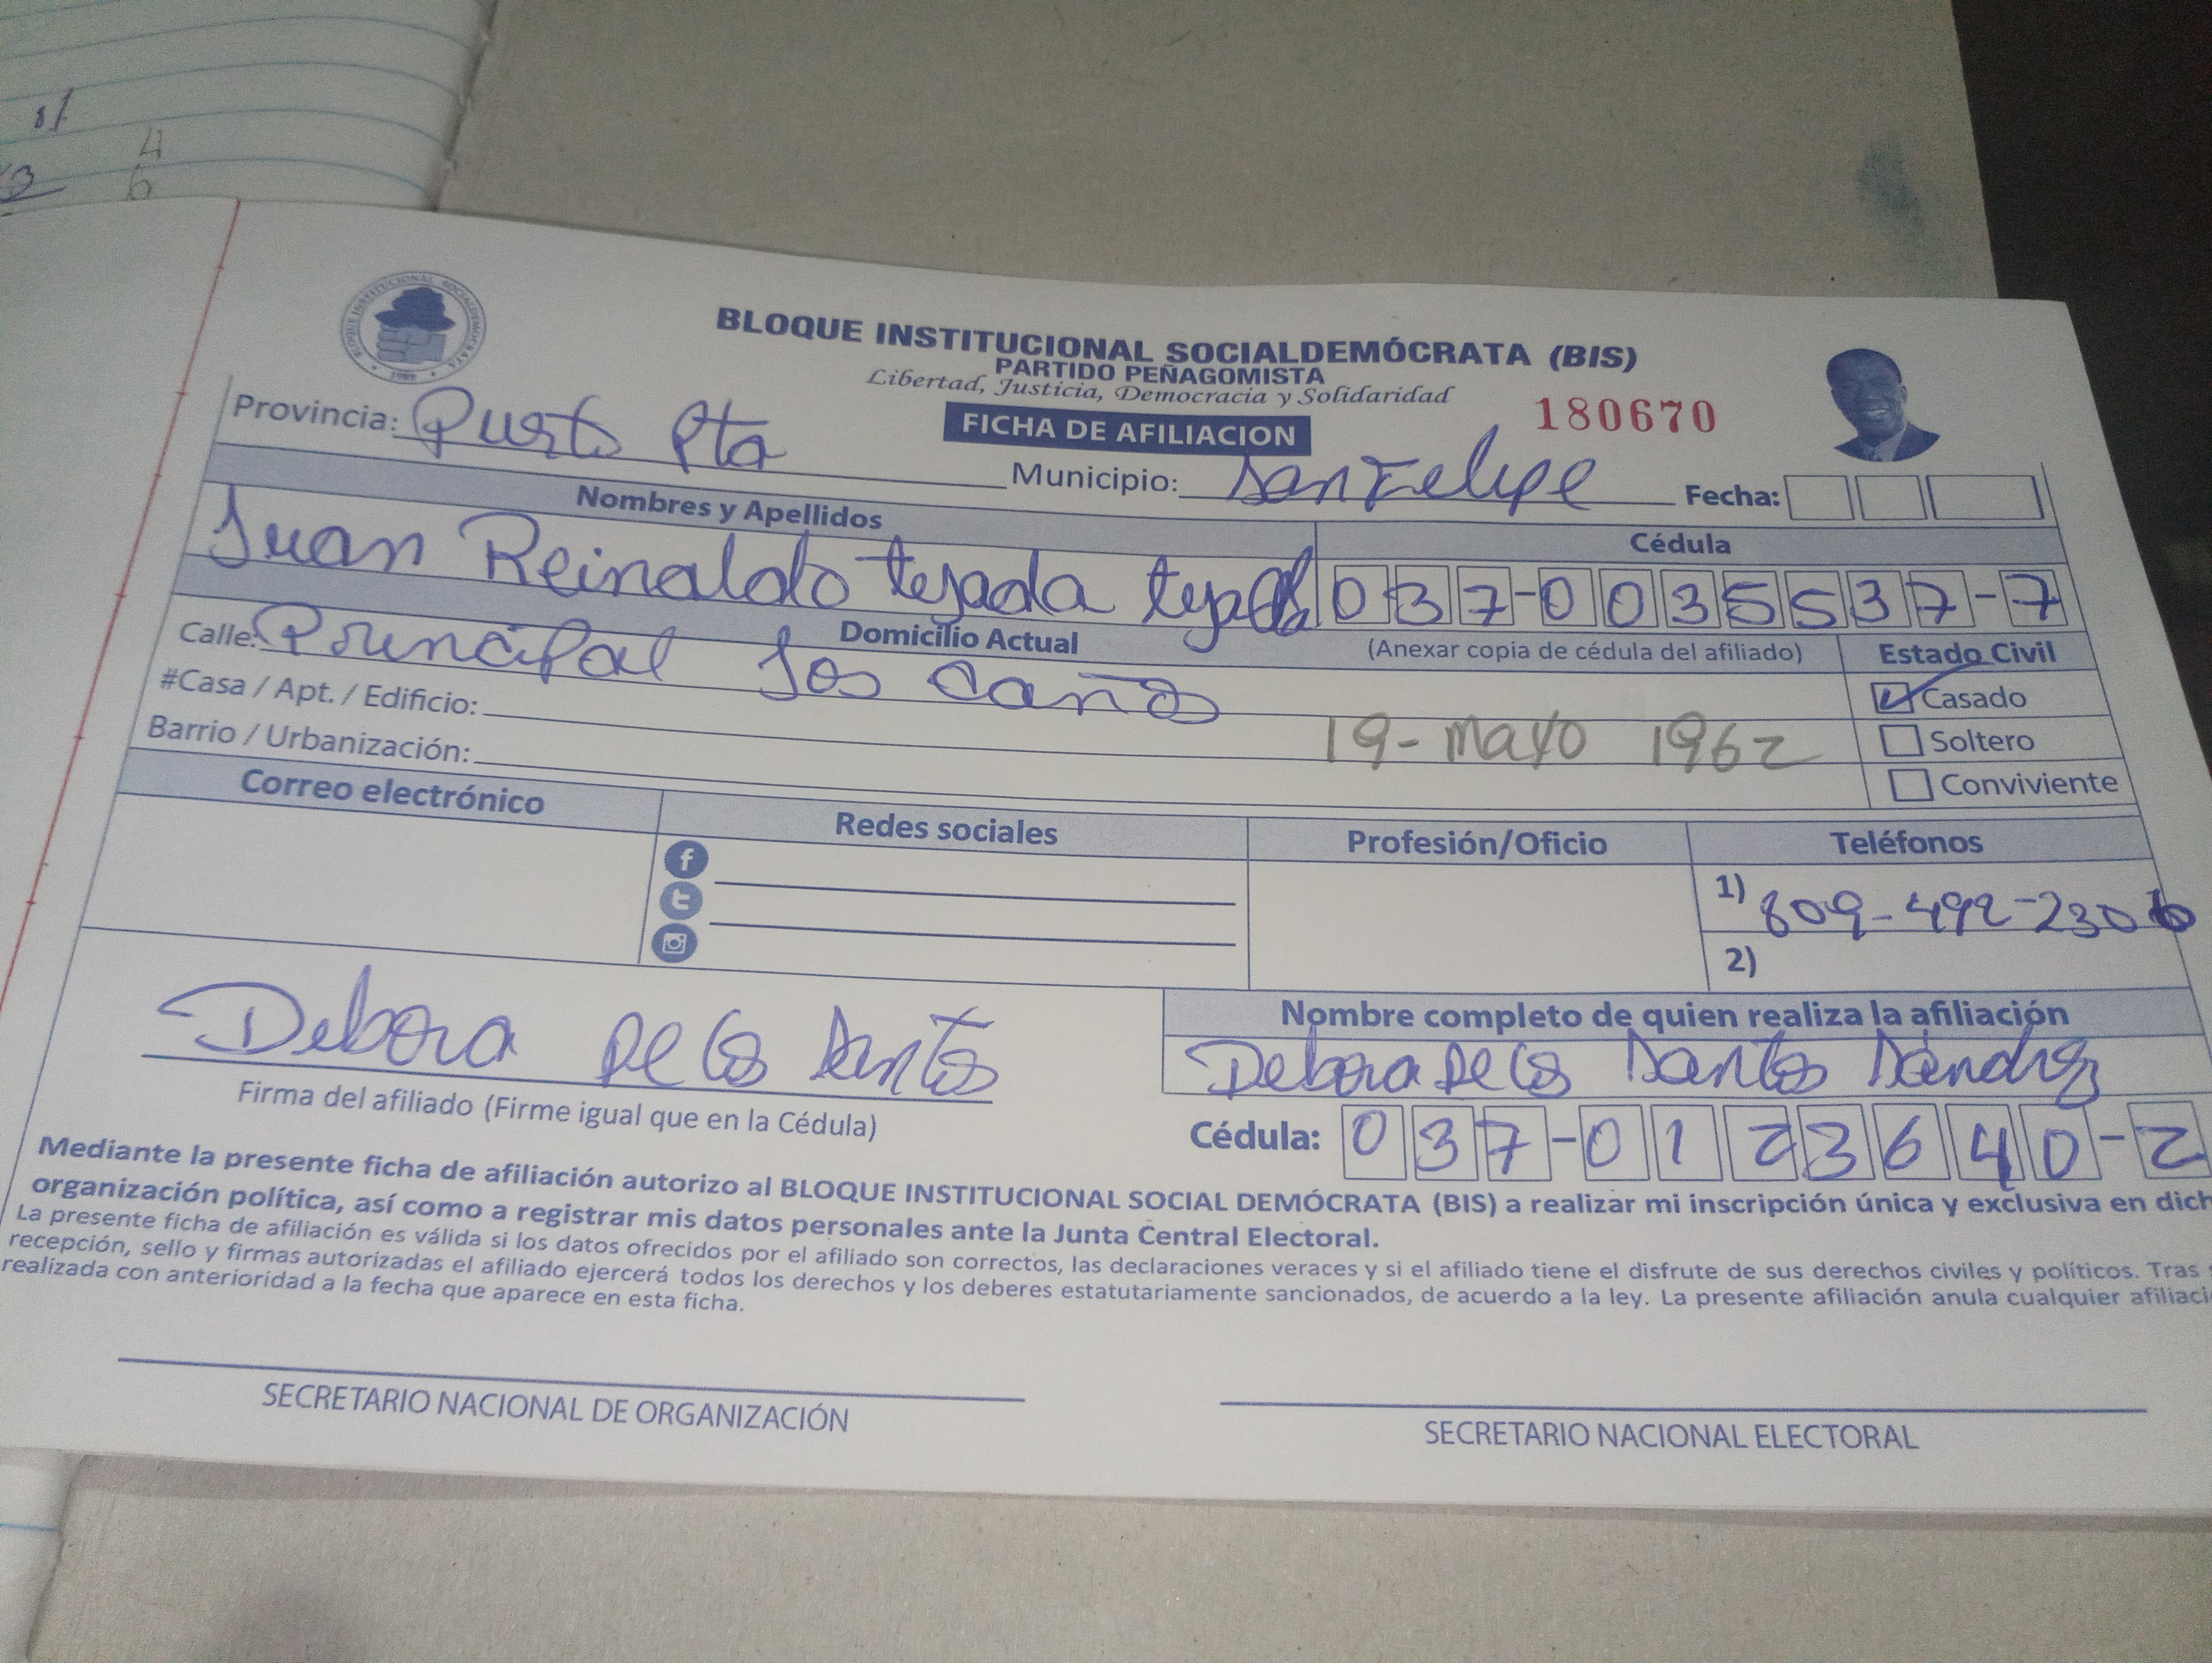 4
6
BLOQUE INSTITUCIONAL SOCIALDEMOCRATA
1989
BLOQUE INSTITUCIONAL SOCIALDEMÓCRATA (BIS)
PARTIDO PEÑAGOMISTA
Libertad, Justicia, Democracia y Solidaridad
FICHA DE AFILIACION
180670
Provincia: Puerto Pta
Municipio: San Felipe
Fecha:
Nombres y Apellidos
Cédula
Juan Reinaldo tejada tejada
037-0035537-7
Domicilio Actual
(Anexar copia de cédula del afiliado)
Estado Civil
Calle: Principal los caños
Casado
#Casa / Apt. / Edificio:
19-mayo 1962
Soltero
Barrio / Urbanización:
Conviviente
Correo electrónico
Redes sociales
Profesión/Oficio
Teléfonos
1) 809-492-2306
2)
Debora De los Santos
Firma del afiliado (Firme igual que en la Cédula)
Nombre completo de quien realiza la afiliación
Debora De los Santos Sánchez
Cédula: 037-0123640-2
Mediante la presente ficha de afiliación autorizo al BLOQUE INSTITUCIONAL SOCIAL DEMÓCRATA (BIS) a realizar mi inscripción única y exclusiva en dich
organización política, así como a registrar mis datos personales ante la Junta Central Electoral.
La presente ficha de afiliación es válida si los datos ofrecidos por el afiliado son correctos, las declaraciones veraces y si el afiliado tiene el disfrute de sus derechos civiles y políticos. Tras
recepción, sello y firmas autorizadas el afiliado ejercerá todos los derechos y los deberes estatutariamente sancionados, de acuerdo a la ley. La presente afiliación anula cualquier afiliaci
realizada con anterioridad a la fecha que aparece en esta ficha.
SECRETARIO NACIONAL DE ORGANIZACIÓN
SECRETARIO NACIONAL ELECTORAL